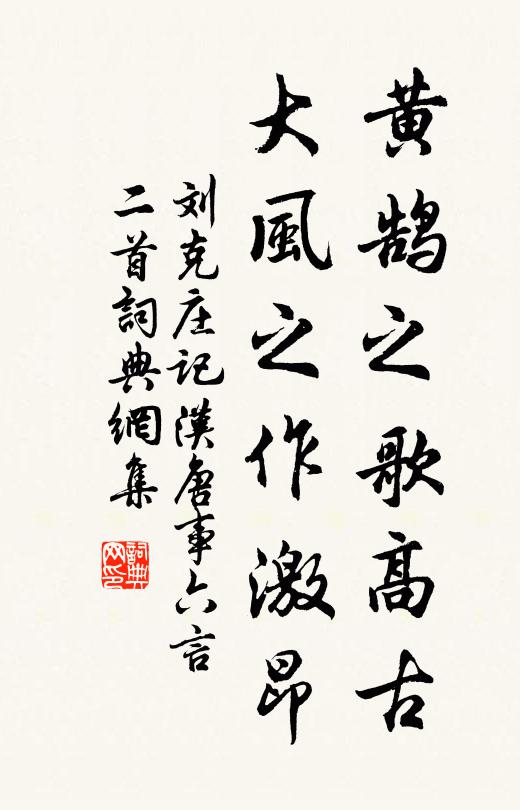 黄鹄之歌高古
大風之作激昂
刘克庄記漢唐事六言
二首詞典網集
詞典網印